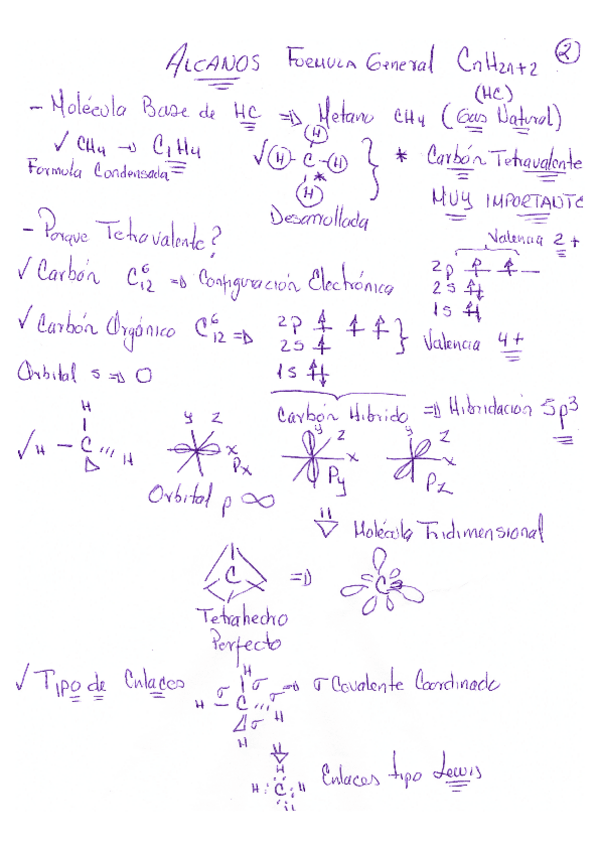 ALCANOS FORMULA General CnH2n+2 2
- Molécula Base de HC => Metano CH4 (Gas Natural)
(HC)
✓ CH4 → C1H4
Formula Condensada
H
✓ H - C - H
H
Desarrollada
* Carbón Tetravalente
MUY IMPORTANTE
- Porque Tetravalente?
✓ Carbón C 6 12 => Configuración Electrónica
Valencia 2+
2p ↑ ↑ _
2s ↑↓
1s ↑↓
✓ Carbón Orgánico C 6 12 => 2p ↑ ↑ ↑
2s ↑
1s ↑↓
Valencia 4+
Orbital s => O
Carbón Hibrido => Hibridación Sp3
H
✓ H - C ''' H
y z x Px
y z x Py
z x Pz
Orbital p ∞
Molécula Tridimensional
C => C
Tetrahedro
Perfecto
✓ Tipo de Enlaces
H
H σ C σ σ H σ
H
=> σ Covalente Coordinado
H
H : C : H
Enlaces tipo Lewis